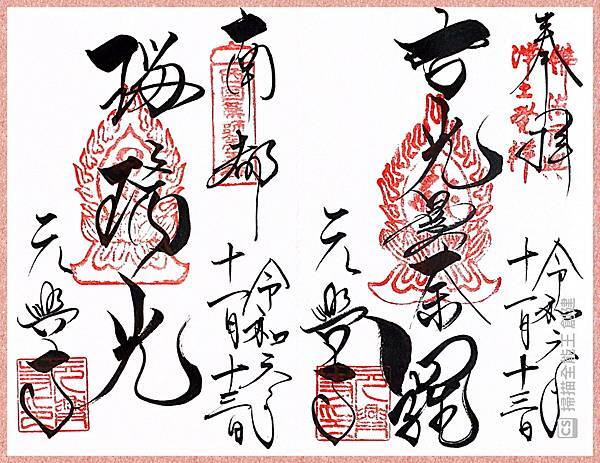 奉拝
佛法元興
浄土発祥
令和六年
十一月十三日
智光曼荼羅
元興寺
南都
令和六年
十一月十三日
瑠璃光
元興寺
CS 掃描全能王 創建